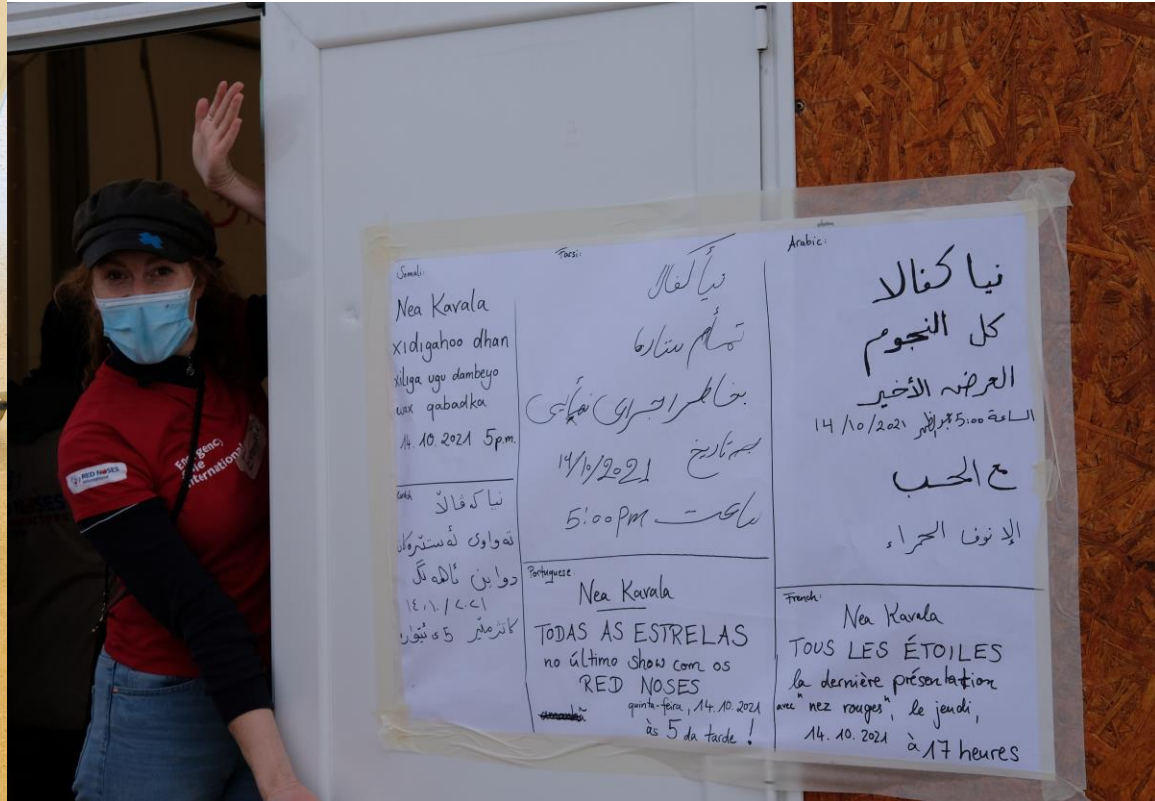 RED NOSES
International
Emergency
Smile
International
Somali:
Nea Kavala
xidigahoo dhan
xiliga ugu dambeyo
wax qabadka
14.10.2021 5p.m.
نیا کەڤالا
تەواوی ئەستێرەکان
دواین ئاهەنگ
١٤/١٠/٢٠٢١
5
Farsi:
نیأ کفالا
تمأم ستارها
بخاطر اجرای نهأیی
به تاریخ 14/10/2021
ساعت 5:00 PM
Portuguese:
Nea Kavala
TODAS AS ESTRELAS
no último show com os
RED NOSES
quinta-feira, 14.10.2021
às 5 da tarde!
Arabic:
نيا كفالا
كل النجوم
العرض الأخير
الساعة 5:00 14/10/2021
الانوف الحمراء
French:
Nea Kavala
TOUS LES ÉTOILES
la dernière présentation
avec "nez rouges", le jeudi,
14.10.2021 à 17 heures